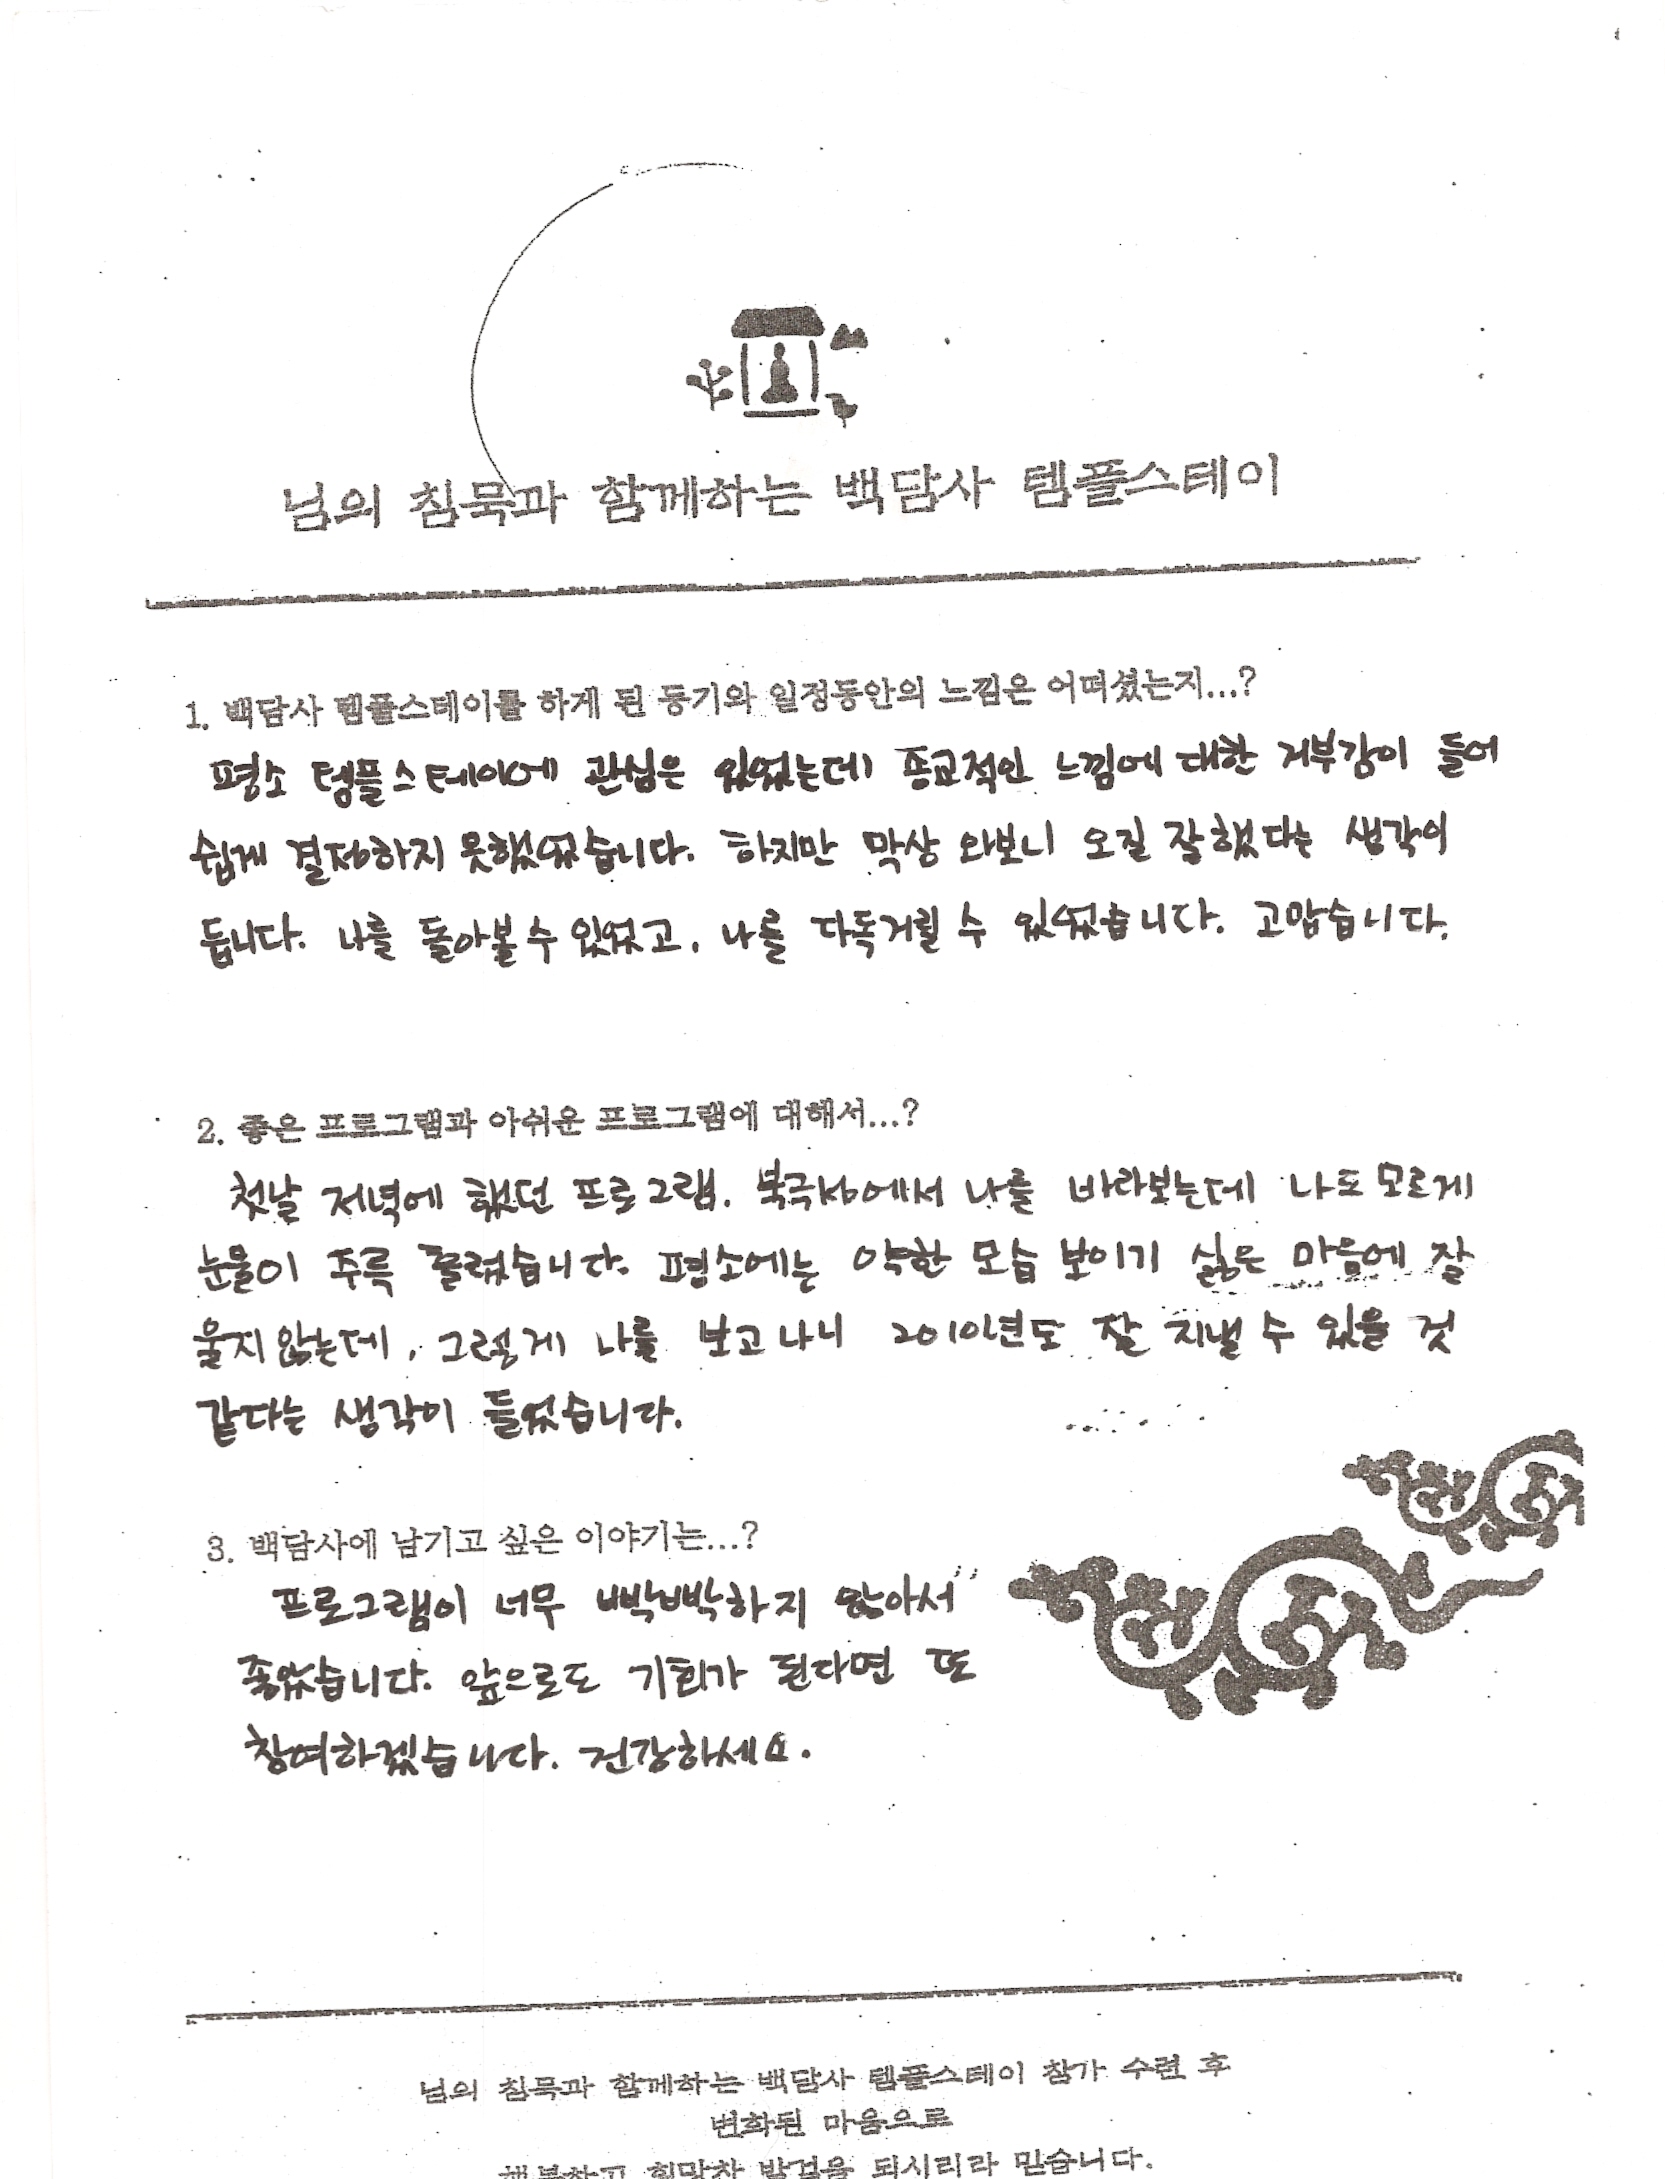 님의 침묵과 함께하는 백담사 템플스테이
1. 백담사 템플스테이를 하게 된 동기와 일정동안의 느낌은 어떠셨는지...?
평소 템플스테이에 관심은 있었는데 종교적인 느낌에 대한 거부감이 들어
쉽게 결정하지 못했었습니다. 하지만 막상 와보니 오길 잘했다는 생각이
듭니다. 나를 돌아볼 수 있었고, 나를 다독거릴 수 있었습니다. 고맙습니다.
2. 좋은 프로그램과 아쉬운 프로그램에 대해서...?
첫날 저녁에 했던 프로그램. 북극성에서 나를 바라보는데 나도 모르게
눈물이 주륵 흘렀습니다. 평소에는 약한 모습 보이기 싫은 마음에 잘
울지 않는데, 그렇게 나를 보고나니 2010년도 잘 지낼 수 있을 것
같다는 생각이 들었습니다.
3. 백담사에 남기고 싶은 이야기는...?
프로그램이 너무 빡빡하지 않아서
좋았습니다. 앞으로도 기회가 된다면 또
참여하겠습니다. 건강하세요.
님의 침묵과 함께하는 백담사 템플스테이 참가 수련 후
변화된 마음으로
행복하고 희망찬 발걸음 되시리라 믿습니다.